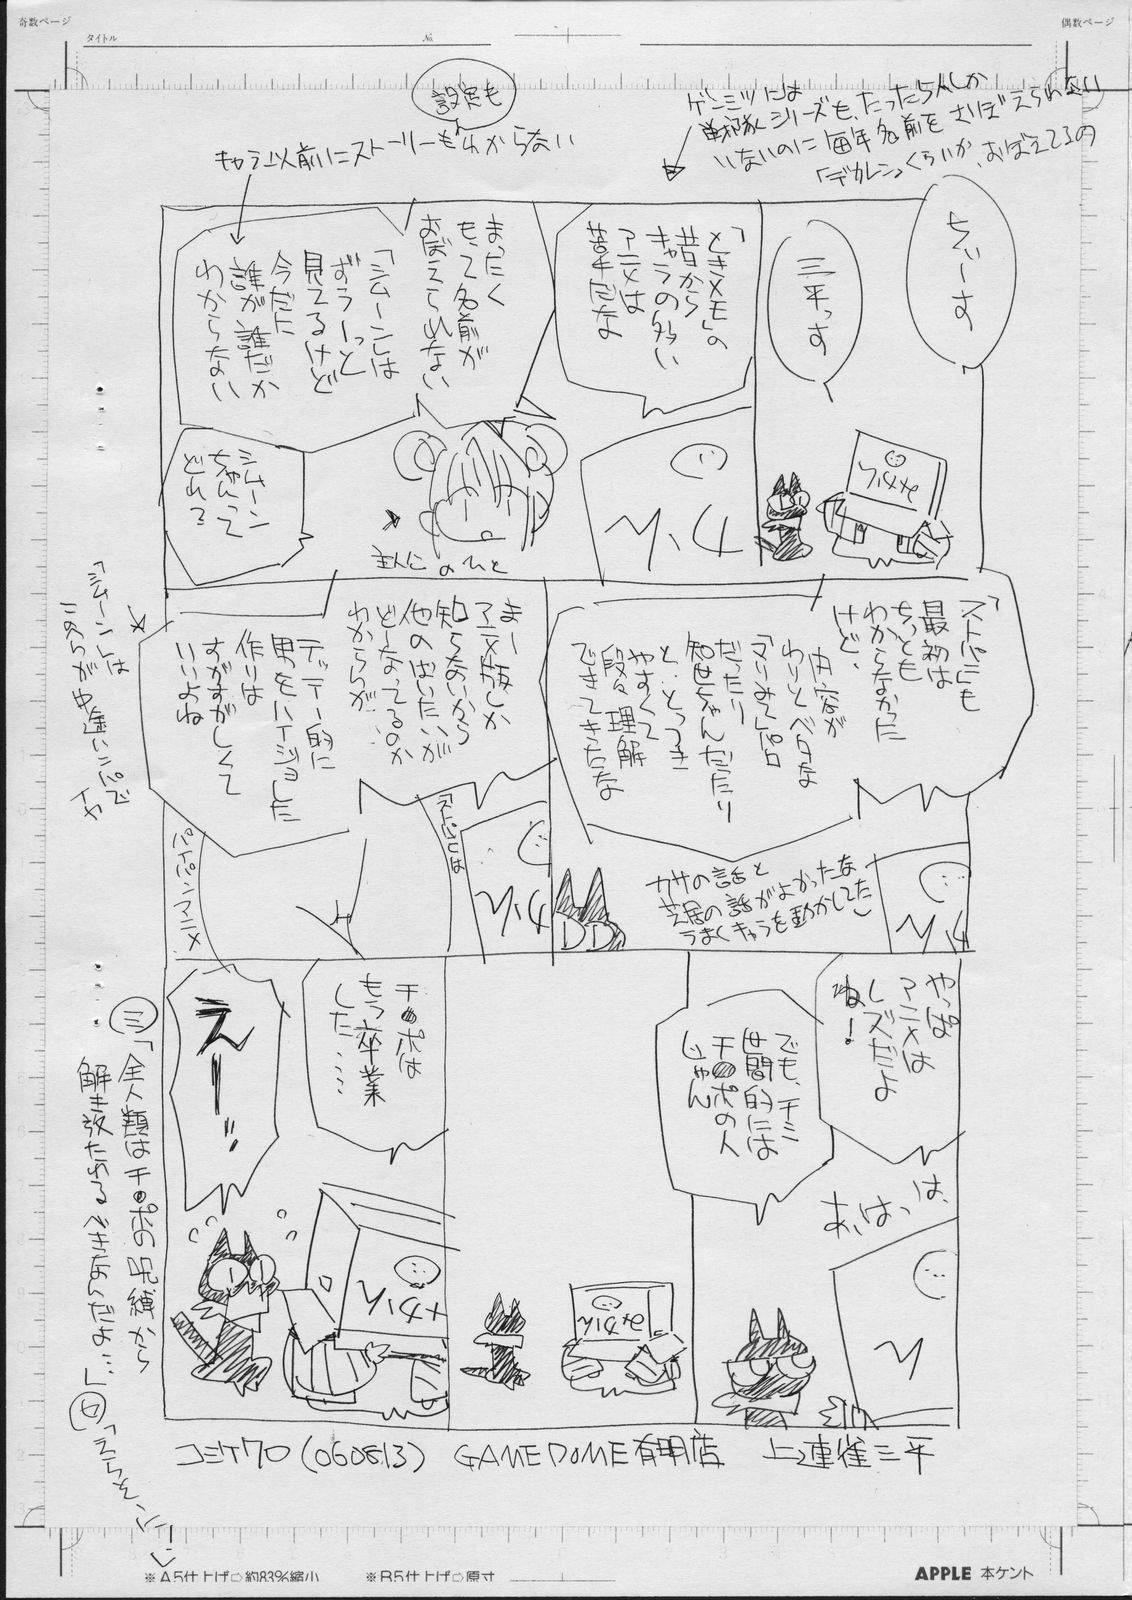 奇数ページ
タイトル
No.
偶数ページ
設定も
キャラ以前にストーリーもわからない
ゲンミツには
戦隊シリーズも、たった5人しか
いないのに毎年名前をおぼえられない
「デカレン」くらいか、おぼえてるの
ちぃーす
三平っす
「ときメモ」の
昔から
キャラの多い
アニメは
苦手だな
まったく
もって名前が
おぼえられない
「シムーン」は
ずぅーっと
見てるけど
今だに
誰が誰だか
わからない
シムーン
ちゃんって
どれ?
主人公のひと
みかん
みかん
「ストパニ」も
最初は
ちっとも
わからなかった
けど、
内容が
わりとベタな
「マリみて」パロ
だったり
知世ちゃんだったり
と、とっつき
やすくて
段々理解
できてきたな
カサの話と
芝居の話がよかったな
うまくキャラを動かしてた
まー
アニメ版しか
知らないから
他のはいたいが
どーなってるのか
わからんが…
テッテー的に
男をハイジョした
作りは
すがすがしくて
いいよね
「シムーン」は
このへんが中途ハンパで
イヤ
ストパニは
パイパンアニメ
みかん
やっぱ
アニメは
レズだよ
ね!
あ、はっ、は、
でも、チミ
世間的には
チ●ポの人
じゃん
チ●ポは
もう卒業
した……
えー!!
みかん
みかん
三「全人類はチ●ポの呪縛から
解き放たれるべきなんだよ…」
コミケ70(060813) GAMEDOME有明店 上連雀三平
※A5仕上げ⇨約83%縮小
※B5仕上げ⇨原寸
APPLE 本ケント